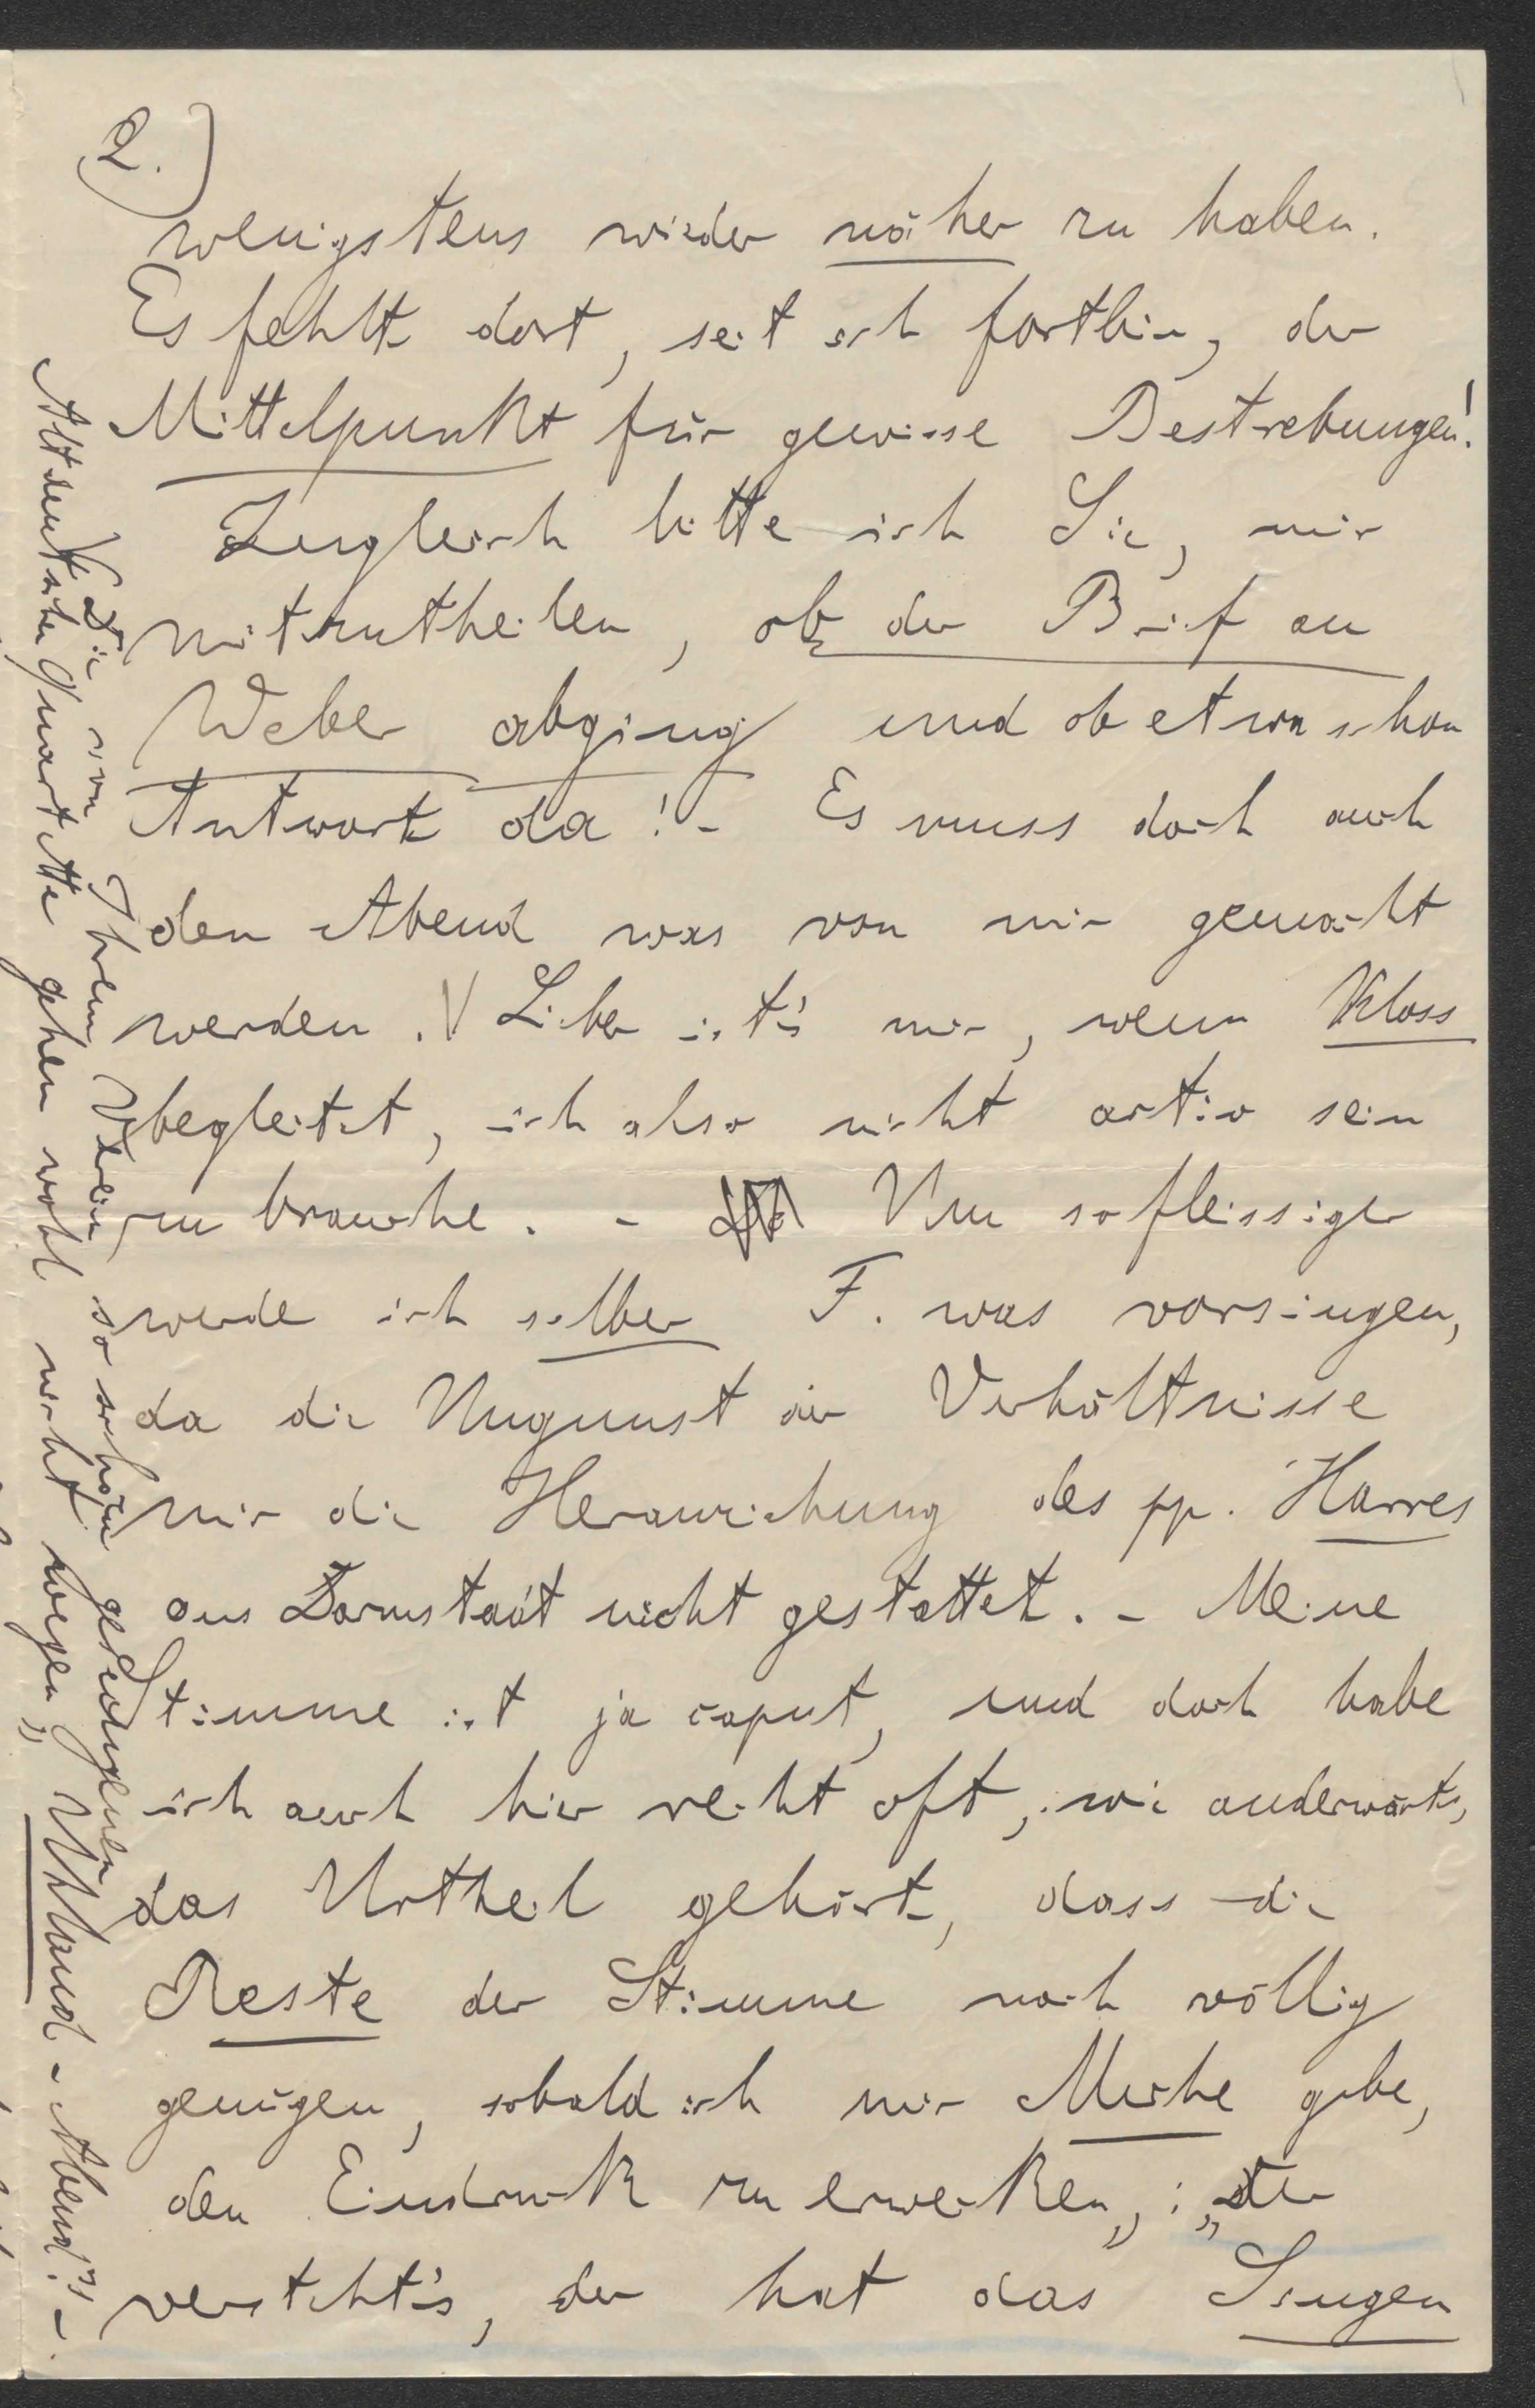 2.)
wenigstens wieder näher zu haben.
Es fehlt dort, seit ich fortbin, der
Mittelpunkt für gewisse Bestrebungen!
Zugleich bitte ich Sie, mir
mitzutheilen, ob der Brief an
Weber abging und ob etwa schon
Antwort da! - Es muss doch auch
den Abend was von mir gemacht
werden. V Lieber ist's mir, wenn Kloss
begleitet, ich also nicht activ sein
zu brauche. - Um so fleissiger
werde ich selber F. was vorsingen,
da die Ungunst der Verhältnisse
mir die Heranziehung des pp. Harres
aus Darmstadt nicht gestattet. - Meine
Stimme ist ja caput, und doch habe
ich auch hier recht oft, wie anderwärts,
das Urtheil gehört, dass die
Reste der Stimme noch völlig
genügen, sobald ich mir Mühe gebe,
den Eindruck zu erwecken,: „der
versteht's, der hat das Singen
V Die von Ihrem Verein so schön gesungenen
Altdeutschen Quartette gehen wohl nicht wegen „Uhland-Abend"? -